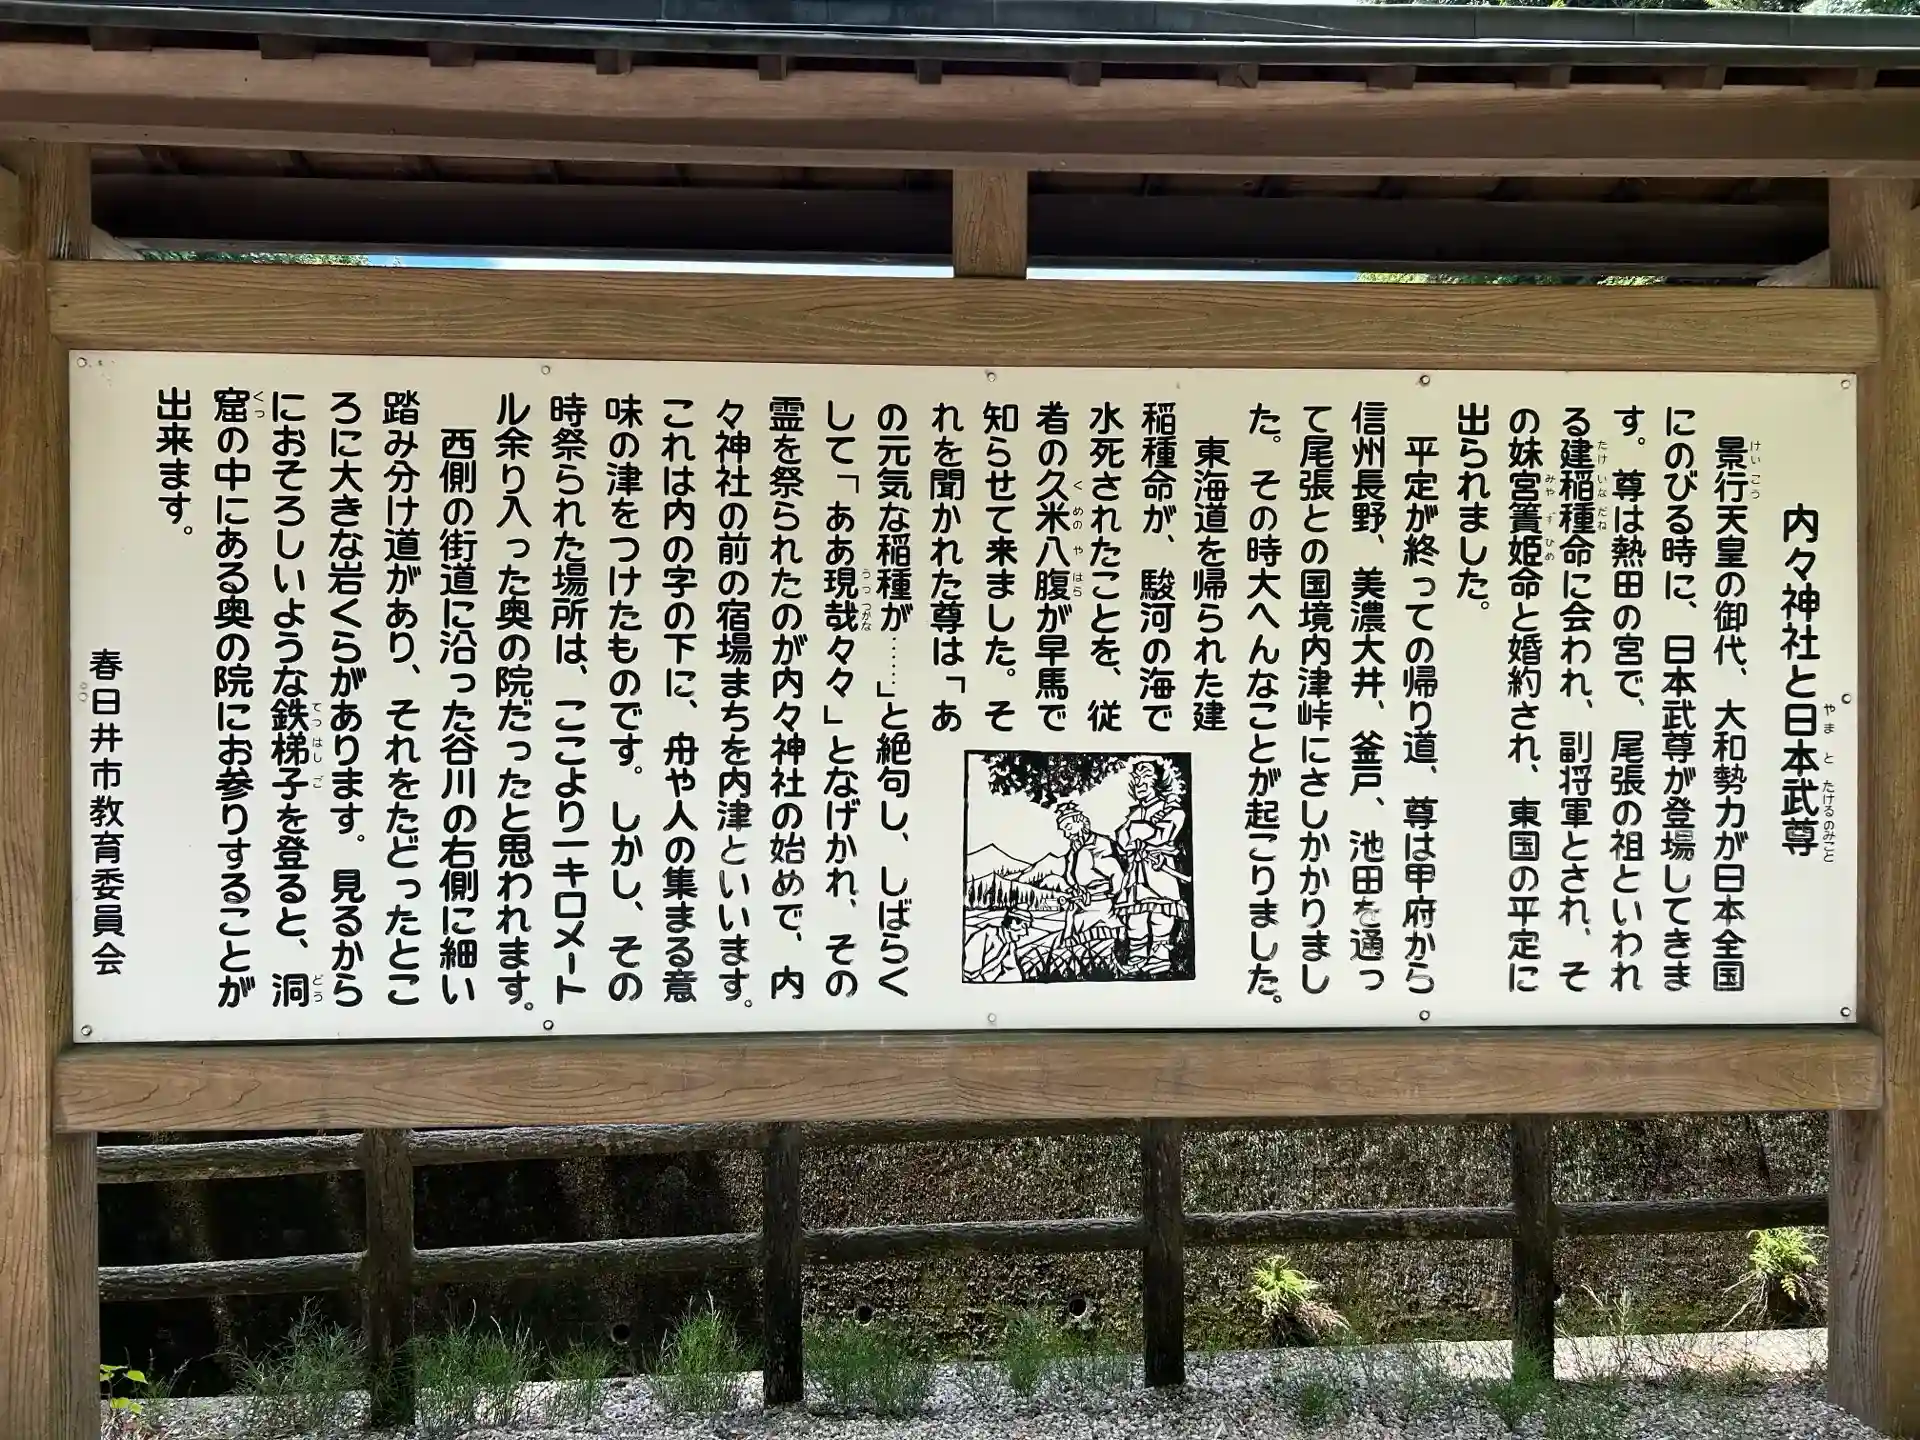 内々神社と日本武尊
景行天皇の御代、大和勢力が日本全国
にのびる時に、日本武尊が登場してきま
す。尊は熱田の宮で、尾張の祖といわれ
る建稲種命に会われ、副将軍とされ、そ
の妹宮簀姫命と婚約され、東国の平定に
出られました。
平定が終っての帰り道、尊は甲府から
信州長野、美濃大井、釜戸、池田を通っ
て尾張との国境内津峠にさしかかりまし
た。その時大へんなことが起こりました。
東海道を帰られた建
稲種命が、駿河の海で
水死されたことを、従
者の久米八腹が早馬で
知らせて来ました。そ
れを聞かれた尊は「あ
の元気な稲種が……」と絶句し、しばらく
して「ああ現哉々々」となげかれ、その
霊を祭られたのが内々神社の始めで、内
々神社の前の宿場まちを内津といいます。
これは内の字の下に、舟や人の集まる意
味の津をつけたものです。しかし、その
時祭られた場所は、ここより一キロメート
ル余り入った奥の院だったと思われます。
西側の街道に沿った谷川の右側に細い
踏み分け道があり、それをたどったとこ
ろに大きな岩くらがあります。見るから
におそろしいような鉄梯子を登ると、洞
窟の中にある奥の院にお参りすることが
出来ます。
春日井市教育委員会